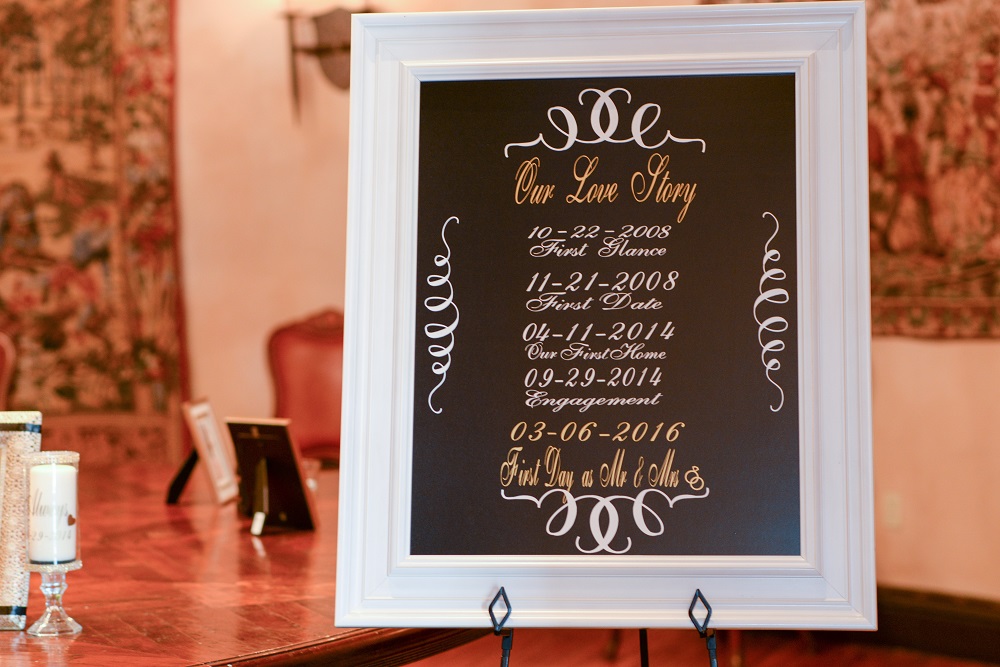 Our Love Story
10-22-2008
First Glance
11-21-2008
First Date
04-11-2014
Our First Home
09-29-2014
Engagement
03-06-2016
First Day as Mr & Mrs
Always
-29-2014